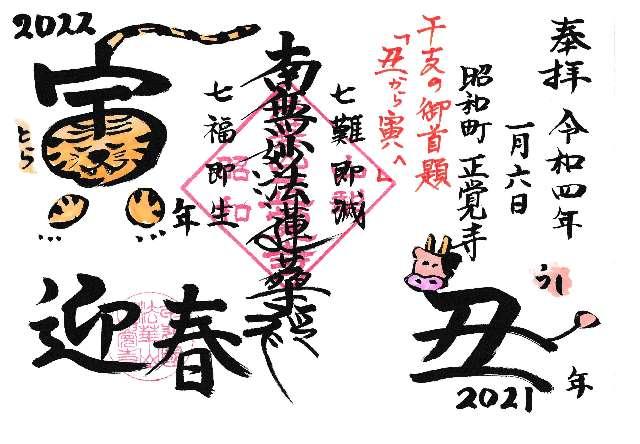 奉拝 令和四年
一月六日
昭和町 正覚寺
干支の御首題
「丑から寅へ」
七難即滅
南無妙法蓮華経
七福即生
2022
寅年
とら
迎春
うし
丑年
2021